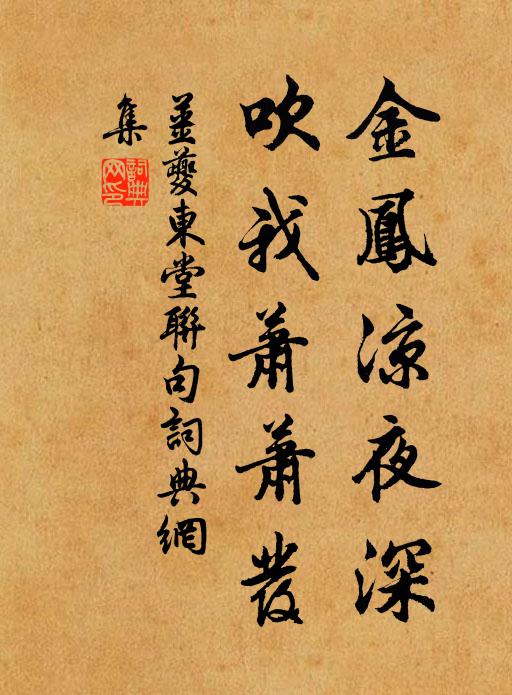 金鳳涼夜深
吹我蕭蕭發
姜夔東堂聯句詞典網
集
詞典
网印